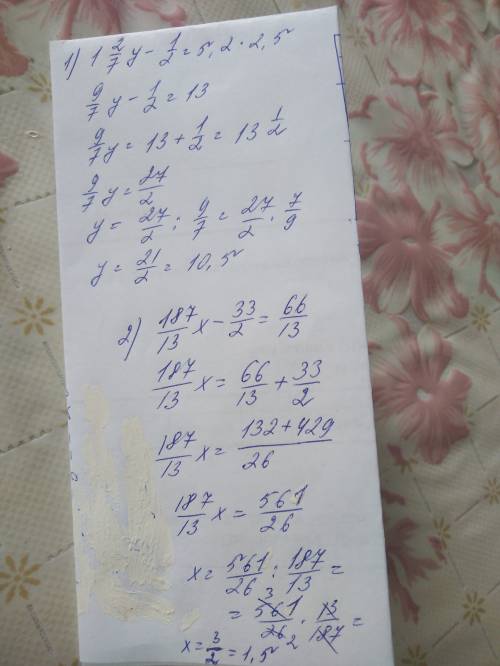 1) 1 2/7 y - 1/2 = 5,2 · 2,5
9/7 y - 1/2 = 13
9/7 y = 13 + 1/2 = 13 1/2
9/7 y = 27/2
y = 27/2 : 9/7 = 27/2 · 7/9
y = 21/2 = 10,5
2) 187/13 x - 33/2 = 66/13
187/13 x = 66/13 + 33/2
187/13 x = 132+429/26
187/13 x = 561/26
x = 561/26 : 187/13 =
= 561/26 · 13/187 =
3 2
x = 3/2 = 1,5